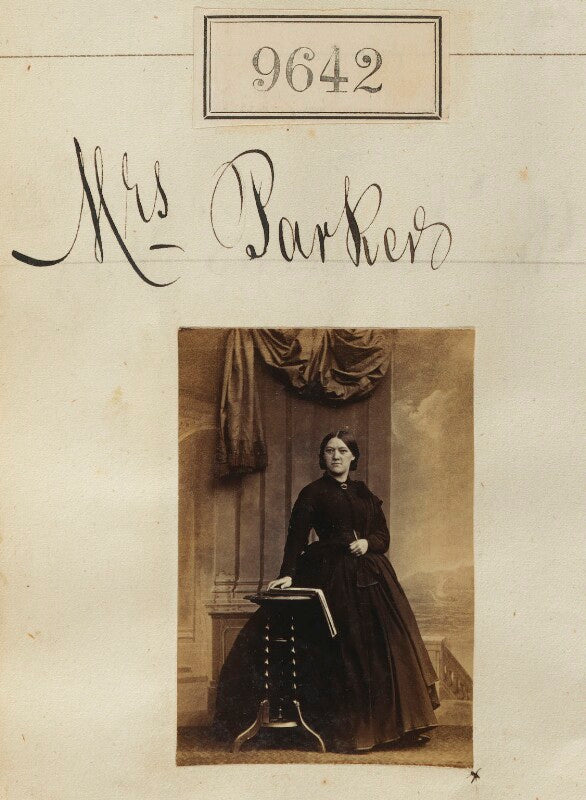 9642
Mrs Parker